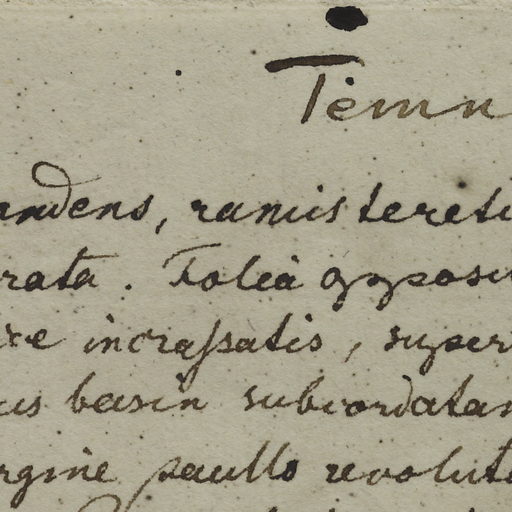 Temn
andens, ramis tereti
rata. Folia opposi
ice incraſsatis, super
us basin subcordatam
rgine paullo revoluta